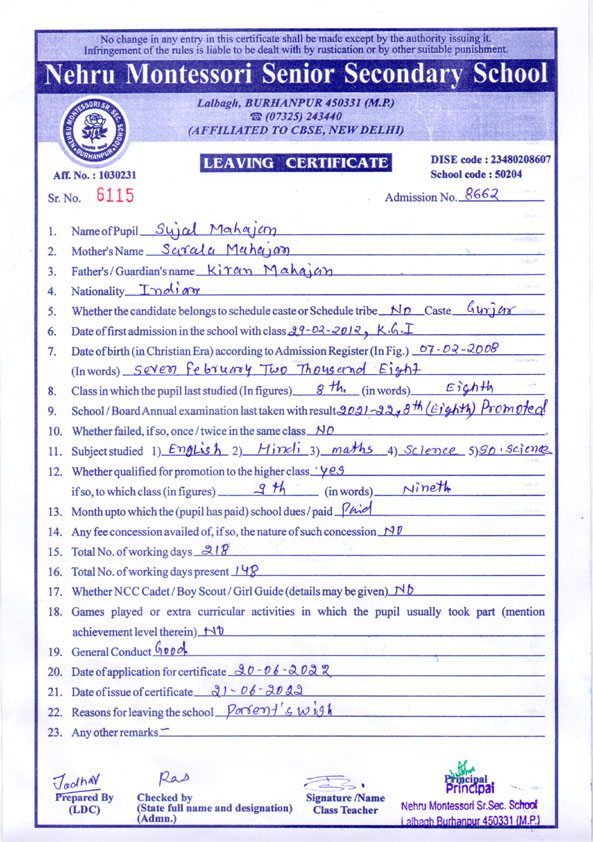 No change in any entry in this certificate shall be made except by the authority issuing it.
Infringement of the rules is liable to be dealt with by rustication or by other suitable punishment.
Nehru Montessori Senior Secondary School
Lalbagh, BURHANPUR 450331 (M.P.)
☎ (07325) 243440
(AFFILIATED TO CBSE, NEW DELHI)
NEHRU MONTESSORI SR. SEC. SCHOOL
BURHANPUR
LEAVING CERTIFICATE
DISE code : 23480208607
Aff. No. : 1030231
School code : 50204
Sr. No. 6115
Admission No. 8662
1. Name of Pupil Sujal Mahajan
2. Mother's Name Sarala Mahajan
3. Father's / Guardian's name Kiran Mahajan
4. Nationality Indian
5. Whether the candidate belongs to schedule caste or Schedule tribe No Caste Gurjar
6. Date of first admission in the school with class 29-02-2012, K.G.I
7. Date of birth (in Christian Era) according to Admission Register (In Fig.) 07-02-2008
(In words) Seven February Two Thousand Eight
8. Class in which the pupil last studied (In figures) 8th. (in words) Eighth
9. School / Board Annual examination last taken with result 2021-22, 8th (Eighth) Promoted
10. Whether failed, if so, once / twice in the same class NO
11. Subject studied 1) English 2) Hindi 3) maths 4) Science 5) So. Science
12. Whether qualified for promotion to the higher class yes
if so, to which class (in figures) 9th (in words) Nineth
13. Month upto which the (pupil has paid) school dues / paid Paid
14. Any fee concession availed of, if so, the nature of such concession NO
15. Total No. of working days 218
16. Total No. of working days present 148
17. Whether NCC Cadet / Boy Scout / Girl Guide (details may be given) NO
18. Games played or extra curricular activities in which the pupil usually took part (mention
achievement level therein) NO
19. General Conduct Good
20. Date of application for certificate 20-06-2022
21. Date of issue of certificate 21-06-2022
22. Reasons for leaving the school Parent's wish
23. Any other remarks –
Jadhav
Prepared By
(LDC)
Ras
Checked by
(State full name and designation)
(Admn.)
Signature /Name
Class Teacher
Principal
Principal
Nehru Montessori Sr.Sec. School
Lalbagh Burhanpur 450331 (M.P.)